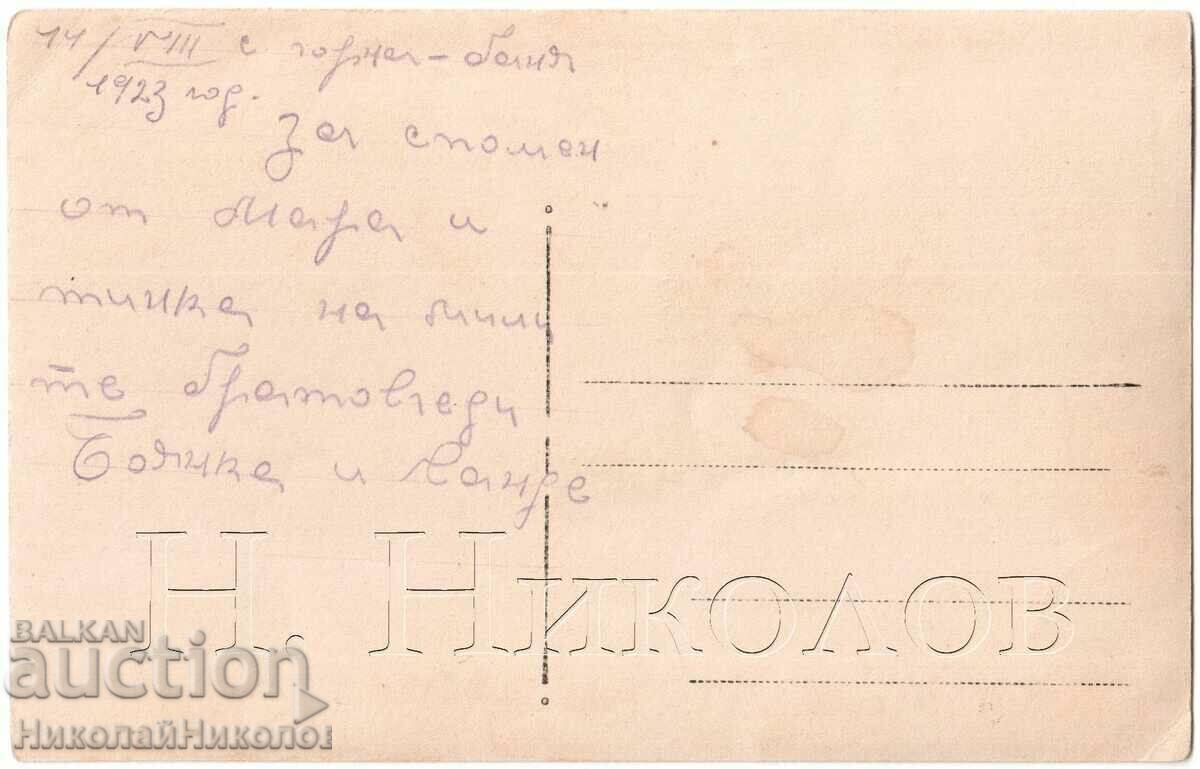 14/VIII с горна-баня
1923 год.
За спомен
от Мара и
тинка на мили
те братовчеди
Боянка и Санде
Н. Николов
BALKAN
auction
НиколайНиколов